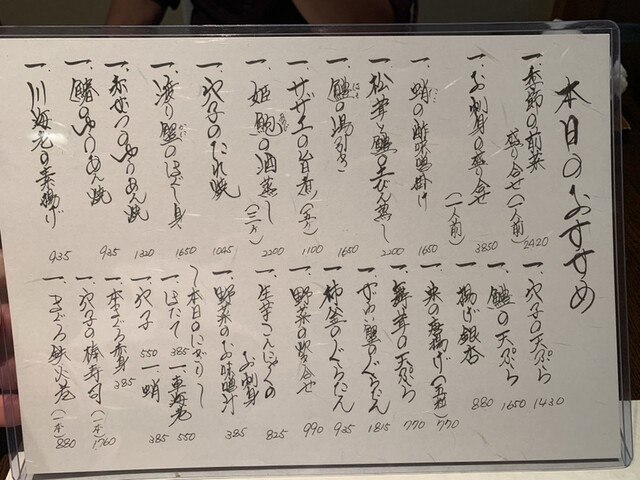 本日のおすすめ
一、季節の前菜
盛り合せ(一人前) 2420
一、お刺身の盛り合せ
(一人前) 3850
一、蛸の酢味噌掛け 1650
一、松茸と鱧の土びん蒸し 2200
一、鱧の湯引き 1650
一、サザエの旨煮(五ヶ) 1100
一、姫鮑の酒蒸し(二ヶ) 2200
一、穴子のたれ焼 1045
一、渡り蟹のほぐし身 1650
1320
一、赤むつのゆうあん焼 935
一、鰆のゆうあん焼
一、川海老の素揚げ 935
一、穴子の天ぷら 1430
一、鱧の天ぷら 1650
一、揚げ銀杏 880
一、の唐揚げ 770
一、舞茸の天ぷら 770
一、ずわい蟹のぐらたん 1815
一、柿釜のぐらたん 935
一、野菜の炊き合せ 990
一、生芋こんにゃくの
お刺身 825
一、野菜のお味噌汁 385
〜本日のにぎり〜
一、ほたて 385 一、車海老 550
一、穴子 550 一、蛸 385
一、本まぐろ赤身 385
一、穴子の棒寿司(一本) 1760
一、まぐろ鉄火巻(一本) 880